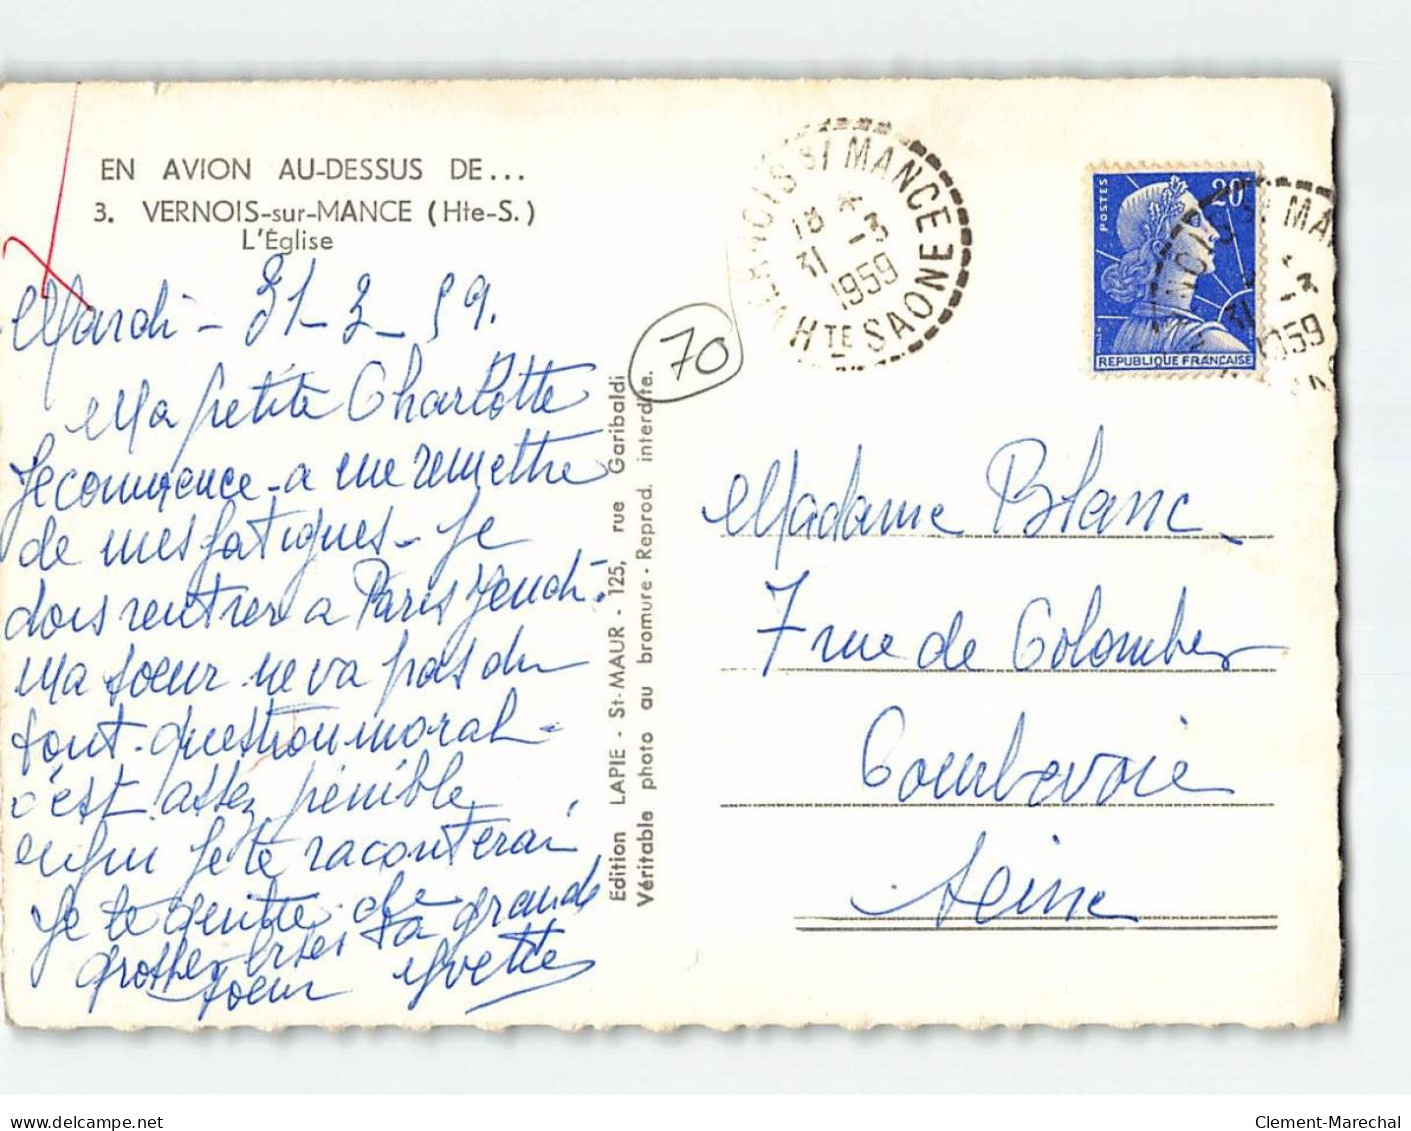 EN AVION AU-DESSUS DE...
3. VERNOIS-sur-MANCE (Hte-S.)
L'Église
Mardi - 31-3-59.
Ma petite Charlotte
Je commence a me remettre
de mes fatigues - Je
dois rentrer a Paris Jeudi -
Ma soeur ne va pas du
tout - question moral -
c'est assez pénible
enfin je te raconterai
Je te quitte de
grosses bises ta grande
soeur Yvette
Edition LAPIE - St-MAUR - 125, rue Garibaldi
Véritable photo au bromure - Reprod. interdite.
70
VERNOIS S/ MANCE
18 *
31 - 3
1959
HTE SAONE
POSTES
20F
REPUBLIQUE FRANÇAISE
NOIS S/ MA
31 - 3
1959
Madame Blanc
7 rue de Colombes
Courbevoie
Seine
delcampe.net
Clement-Marechal